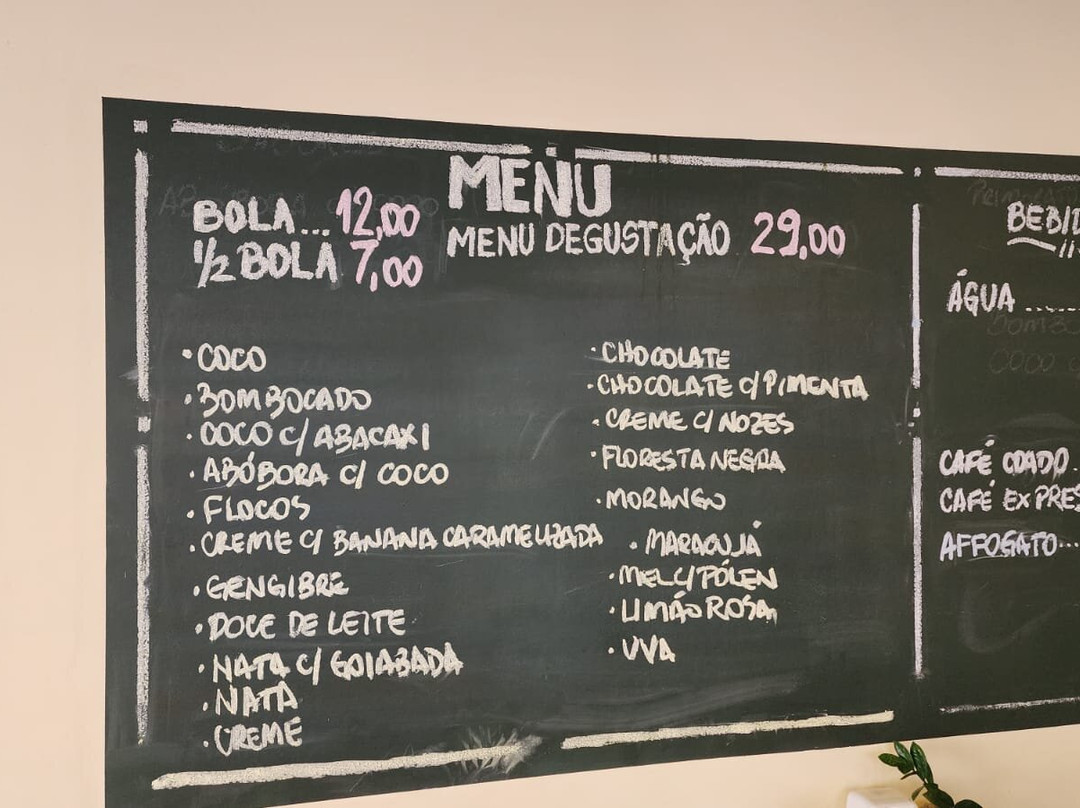 MENU
BOLA... 12,00
1/2 BOLA 7,00
MENU DEGUSTAÇÃO 29,00
• COCO
• BOMBOCADO
• COCO C/ ABACAXI
• ABÓBORA C/ COCO
• FLOCOS
• CREME C/ BANANA CARAMELIZADA
• GENGIBRE
• DOCE DE LEITE
• NATA C/ GOIABADA
• NATA
• CREME
• CHOCOLATE
• CHOCOLATE C/ PIMENTA
• CREME C/ NOZES
• FLORESTA NEGRA
• MORANGO
• MARACUJÁ
• MEL C/ PÓLEN
• LIMÃO ROSA
• UVA
BEBID
ÁGUA ......
CAFÉ COADO.
CAFÉ EXPRES
AFFOGATO...